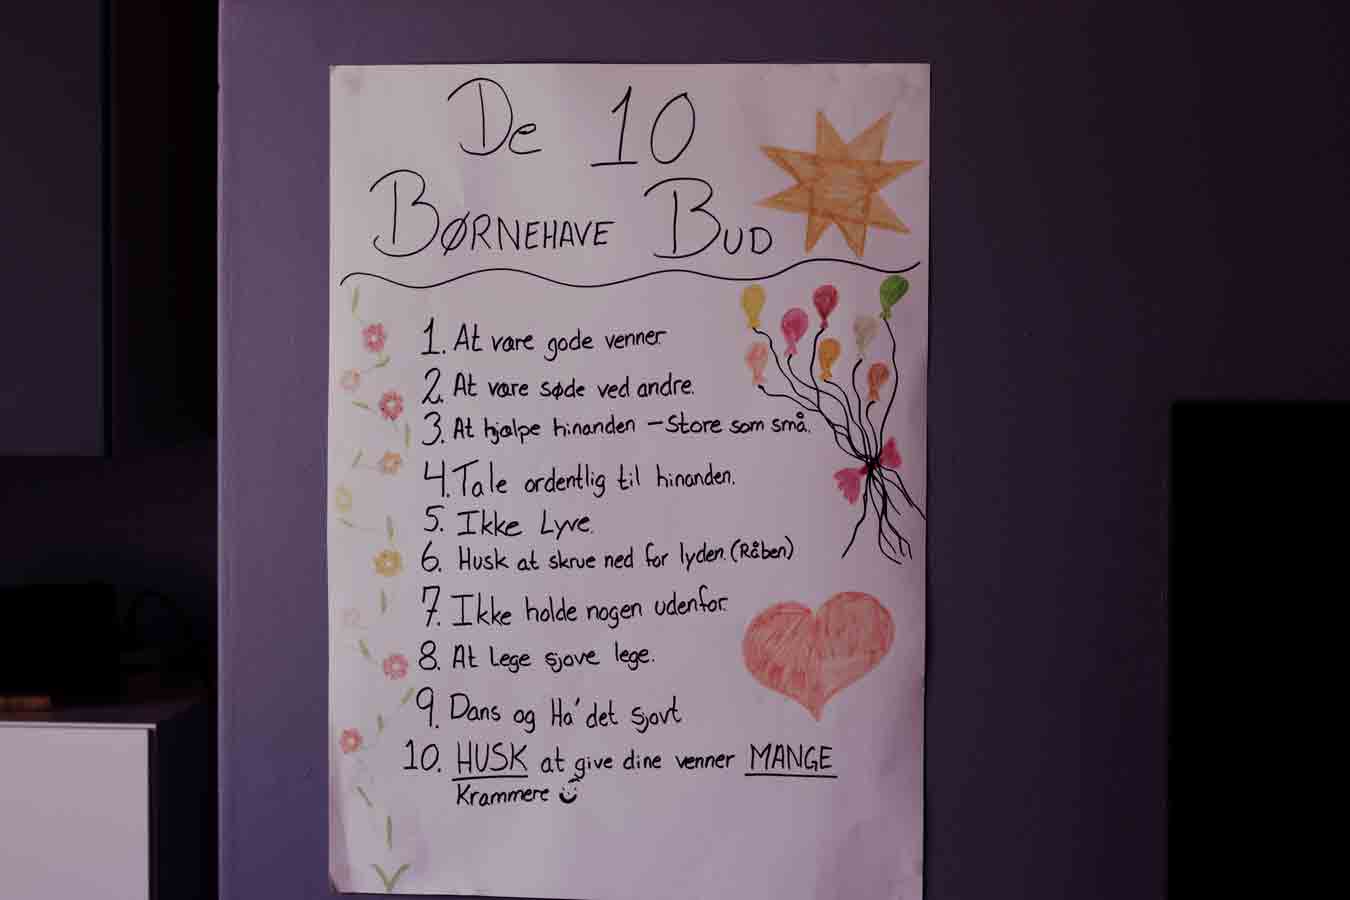 De 10
BØRNEHAVE BUD
1. At være gode venner
2. At være søde ved andre.
3. At hjælpe hinanden - Store som små.
4. Tale ordentlig til hinanden.
5. Ikke Lyve.
6. Husk at skrue ned for lyden. (Råben)
7. Ikke holde nogen udenfor.
8. At Lege sjove lege.
9. Dans og Ha' det sjovt
10. HUSK at give dine venner MANGE
Krammere